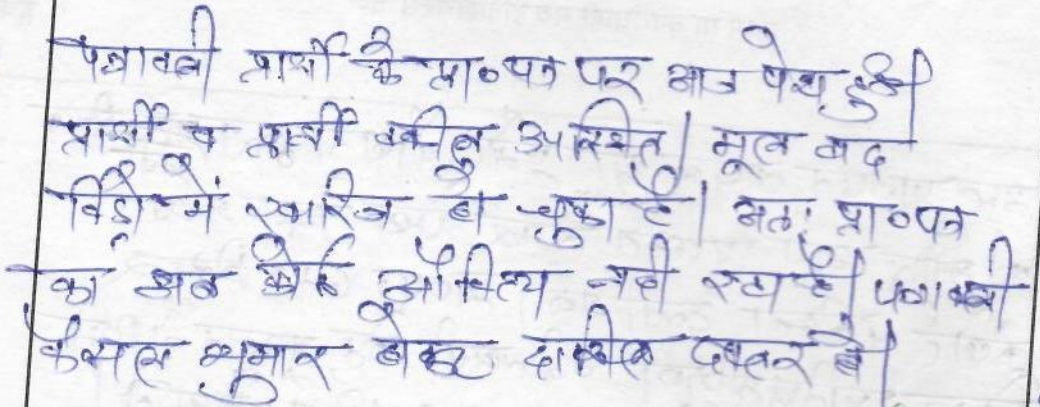 पत्रावली प्रार्थी के प्रा०पत्र पर आज पेश हुई।
प्रार्थी व प्रार्थी वकील उपस्थित। मूल वाद
विड्रो में खारिज हो चुका है। अतः प्रा०पत्र
का अब कोई औचित्य नही रहा है। पत्रावली
फैसल शुमार होकर दाखिल दफ्तर हो।